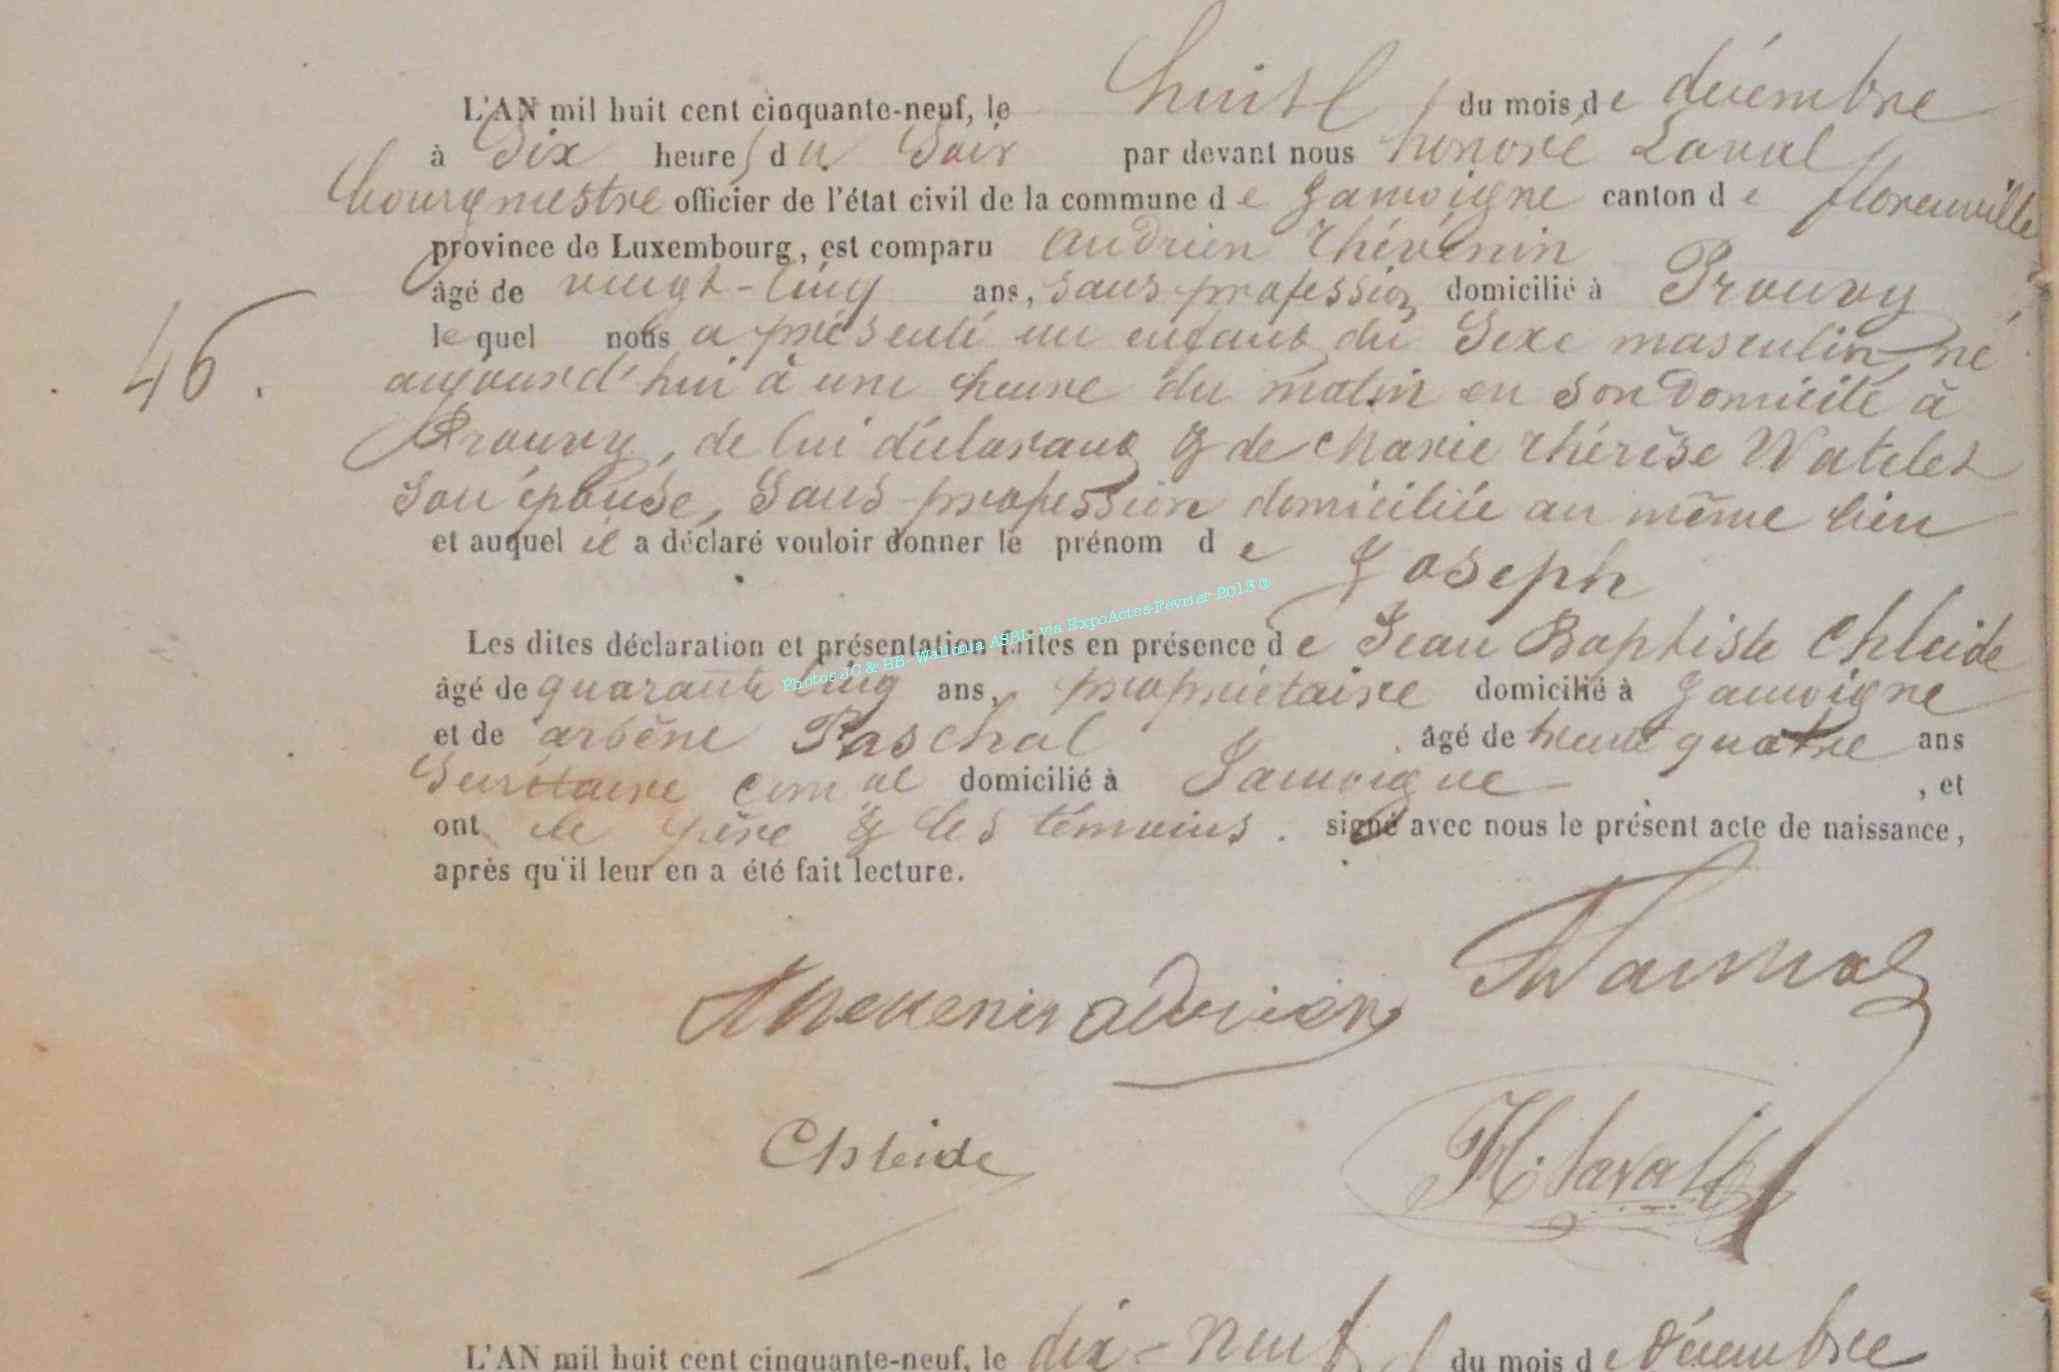 L'AN mil huit cent cinquante-neuf, le huit du mois de décembre
à Six heures du Soir par devant nous honoré Laval
bourgmestre officier de l'état civil de la commune de Jamoigne canton de florenville
province de Luxembourg, est comparu Andrien Thévenin
âgé de vingt-cinq ans, Sans profession domicilié à Prouvy
lequel nous a présenté un enfant du Sexe masculin, né
46.
aujourd'hui à une heure du matin en Son Domicile à
Prouvy, de lui déclarant & de Marie thérèse Watelet
Son épouse, Sans profession domiciliée au même lieu
et auquel il a déclaré vouloir donner le prénom de Joseph
Photos JC & HB - Wallonia ASBL - via ExpoActes-Février 2013 ©
Les dites déclaration et présentation faites en présence de Jean Baptiste Chleide
âgé de quarante cinq ans, propriétaire domicilié à Jamoigne
et de arsène Paschal âgé de trente quatre ans
Secrétaire comal domicilié à Jamoigne, et
ont le père & les témoins. signé avec nous le présent acte de naissance,
après qu'il leur en a été fait lecture.
Thevenin adrien
Chleide
H. Laval
L'AN mil huit cent cinquante-neuf, le dix-neuf du mois de Décembre